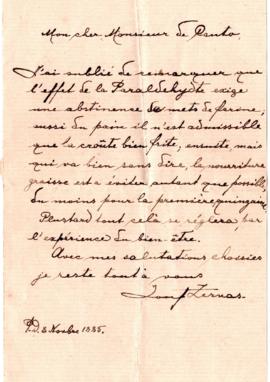 Mon cher Monsieur de Canto.
J'ai oublié de remarquer que
l'effet de la Paraldehyde exige
une abstinence de mets de farine,
aussi du pain il n'est admissible
que la croûte bien frite; ensuite, mais
qui va bien sans dire, la nourriture
graisse est à éviter autant que possible,
du moins pour la première quinzaine.
Plustard tout celà se réglera, par
l'expérience du bien-être.
Avec mes salutations
je reste tout à vous
P.D. 3 Novbre 1885.